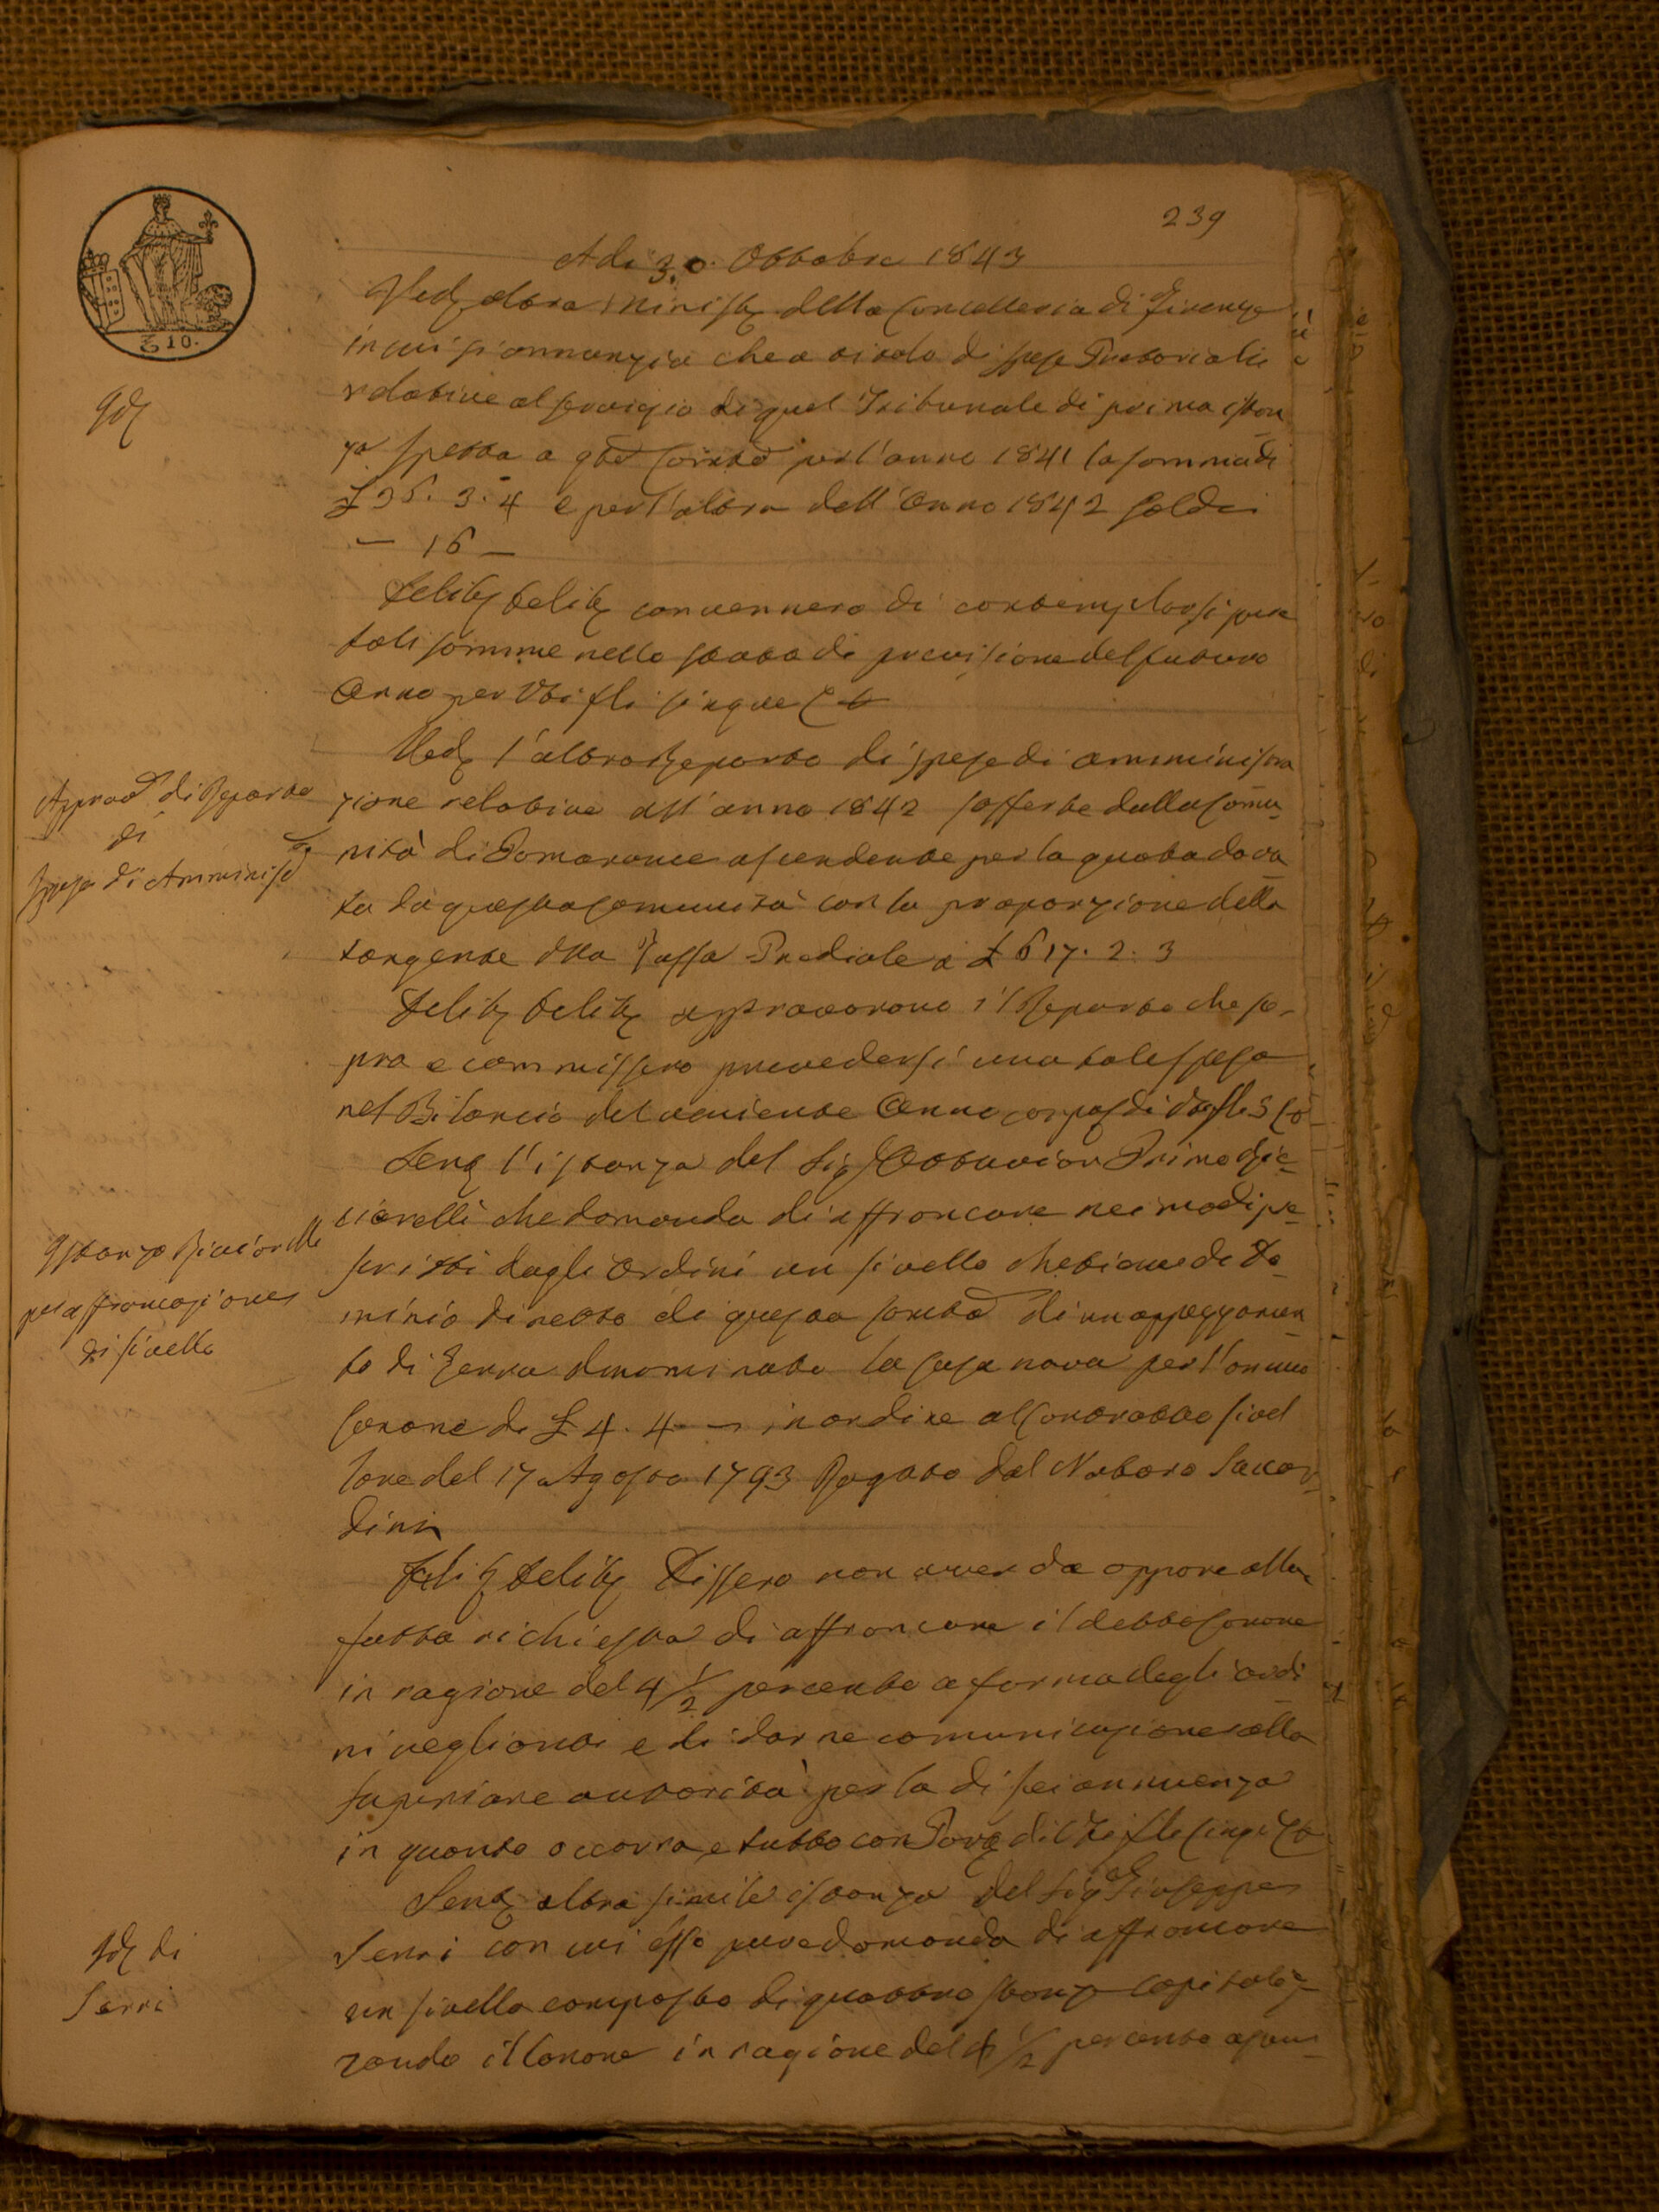 239
Adi 30. Ottobre 1843
Ved altra Minist della Cancelleria di Firenze
in cui si annunzia che a titolo di spese Pretoriali
relative al servigio di quel Tribunale di prima istan
za spetta a qta Comtà per l'anno 1841 la somma di
£ 3. 4 e per l'altra dell'Anno 1842 soldi
— 16 —
Delib Delib convennero di contemplarsi pure
tali somme nello stato di previsione del futuro
Anno per Voti fli cinque
Ved l'altro Reparto di spese di amministra
zione relative all'anno 1842 sofferte dalla Comu
nità di Pomarance ascendente per la quota dova
ta da questa Comunità con la proporzione della
tangente della Tassa Prediale a £ 617. 2. 3
Delib Delib approvarono il Reparto che so
pra e commissero prevedersi una tale spesa
nel Bilancio del veniente Anno
Sent l'istanza del Sig Ottavian Primo Ric
ciarelli che domanda di affrancare nei modi pre
scritti dagli Ordini un livello che tiene di Do
minio diretto di questa Comtà di un appezzamen
to di Terra denominato la Casa nova per l'annuo
Canone di £ 4. 4 — in ordine al Contratto livel
lare del 17 Agosto 1793 Rogato dal Notaro
dini
Delib Delib Dissero non aver da opporre alla
fatta richiesta di affrancare il detto Canone
in ragione del 4 1/2 per cento a forma degli ordi
ni veglianti e di darne comunicazione alla
superiore autorità per la di lei annuenza
in quanto occorra e tutto con Par di
Sent altra simile istanza del Sig Giuseppe
Serri con cui esso pure domanda di affrancare
un livello composto di quattro stanze capitaliz
zando il Canone in ragione del 4 1/2 per cento
£ 10.
Id
Approv di Reparto
di
spese di Amminist
Istanza Ricciarelli
per affrancazione
di livello
Id di
Serri